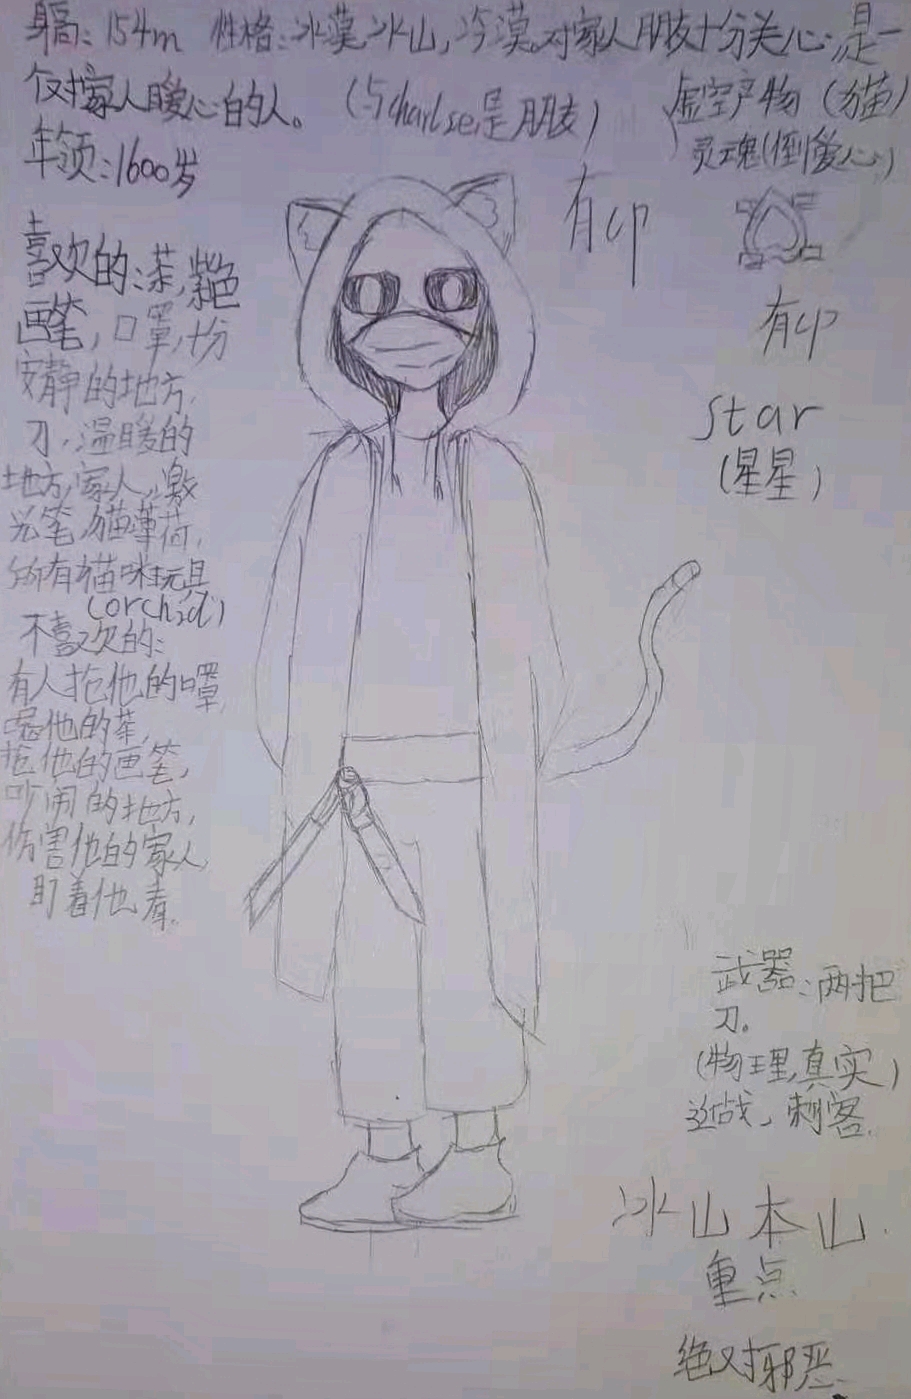 身高:154m 性格:冰漠冰山,冷漠。对家人朋友十分关心,是一
仅对家人暖心的人。(与charlse是朋友)
年领:1600岁
虚空产物(猫)
灵魂(倒爱心)
有cp
有cp
star
(星星)
喜欢的:茶,紫色
画笔,口罩,十分
安静的地方,
刀,温暖的
地方,家人,激
光笔,猫薄荷,
所有猫咪玩具
(orchid)
不喜欢的:
有人抢他的口罩,
喝他的茶,
抢他的画笔,
吵闹的地方,
伤害他的家人,
盯着他看。
武器:两把
刀。
(物理,真实)
近战,刺客。
冰山本山.
重点
绝对邪恶